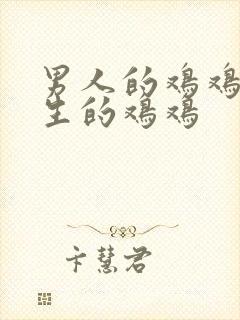 男人的鸡鸡
生的鸡鸡
卞慧君